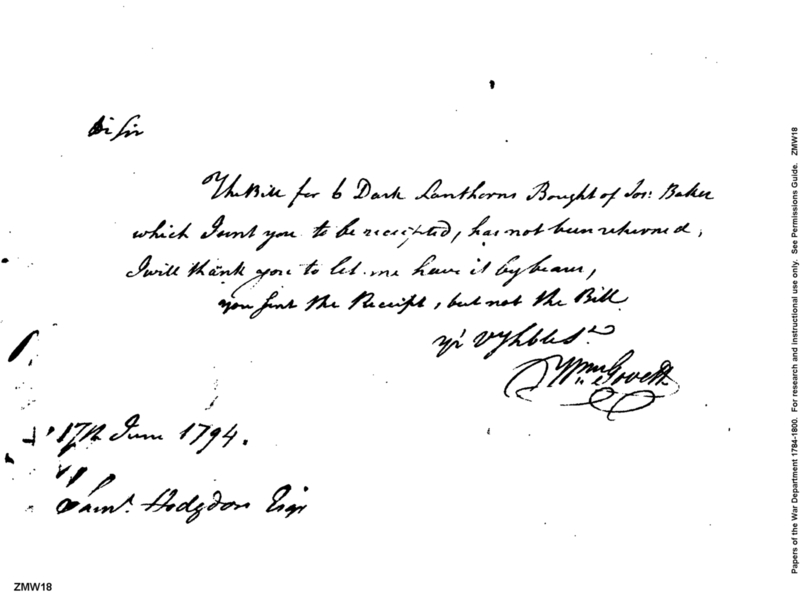 Sir
The Bill for 6 Dark Lanthorns Bought of Jos: Baker
which I sent you to be receipted, has not been returned,
I will thank you to let me have it by bearer,
you sent the Receipt, but not the Bill
yr vy hble St
Wm Govett
17th June 1794.
Saml. Hodgdon Esqr
ZMW18
Papers of the War Department 1784-1800. For research and instructional use only. See Permissions Guide. ZMW18